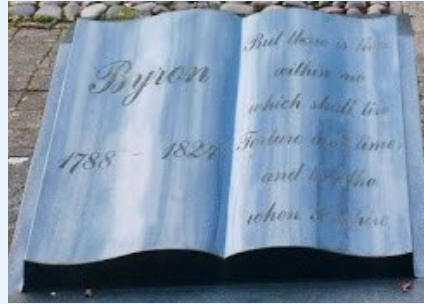 Byron
1788 - 1824
But there is that
within me
which shall tire
Torture and time,
and breathe
when I expire